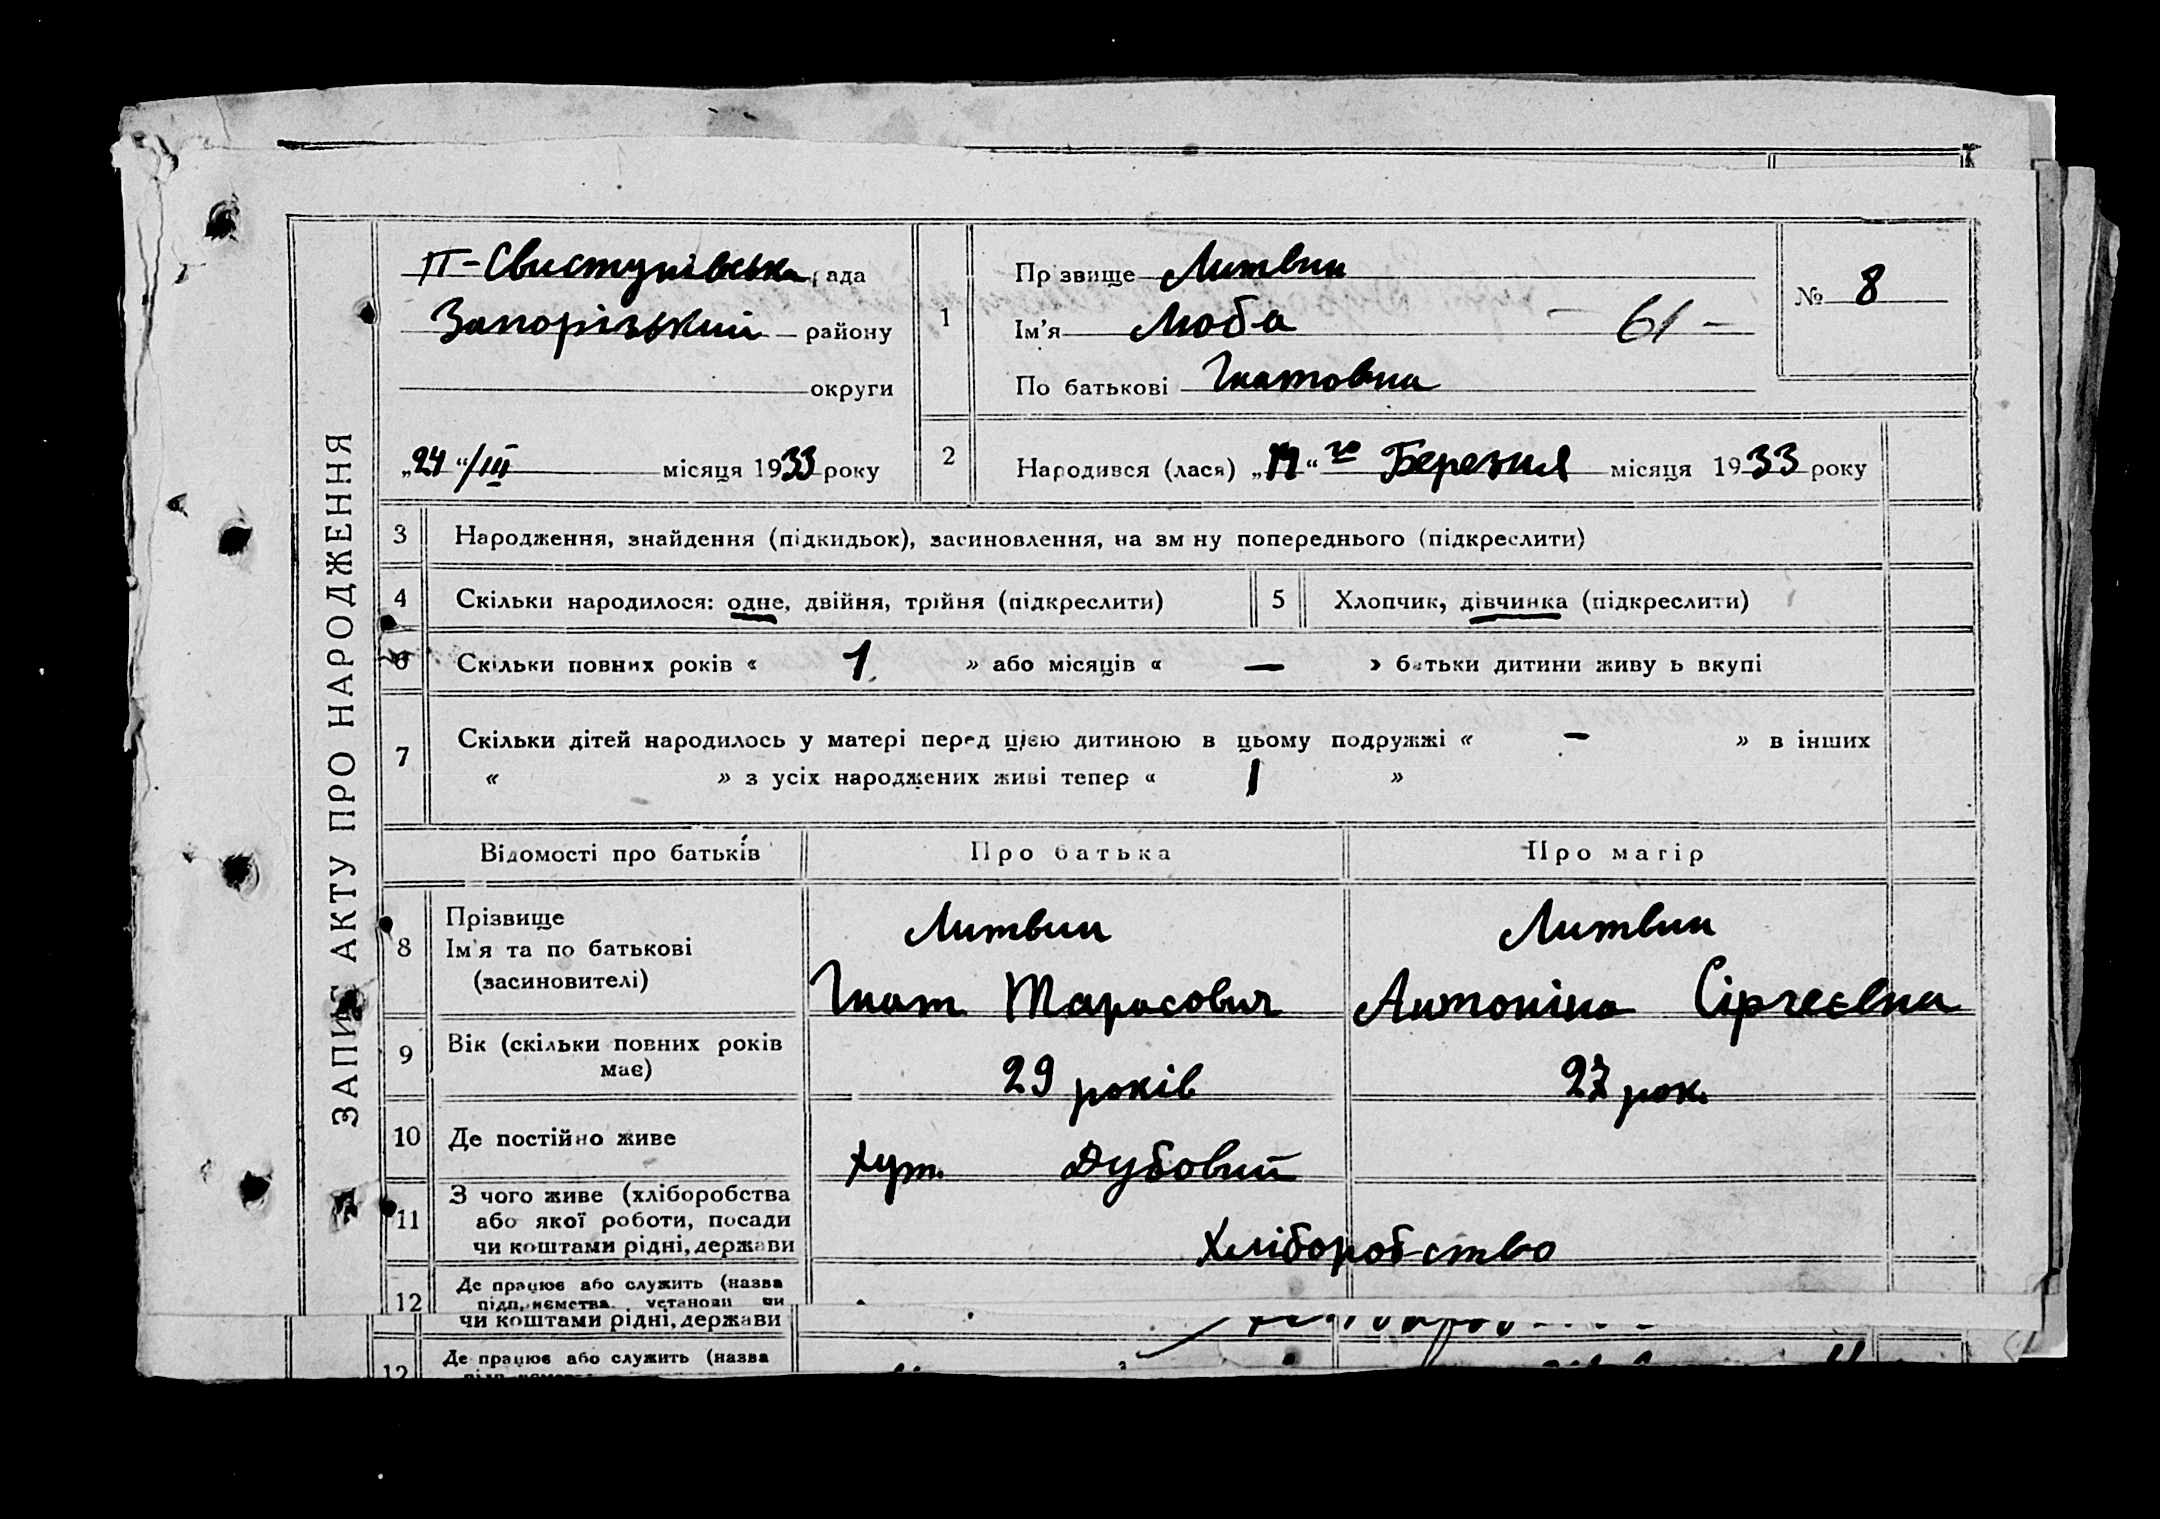 ЗАПИС АКТУ ПРО НАРОДЖЕННЯ
П-Свистунівська рада
Запорізький району
округи
„24“/III місяця 1933 року
1
Прізвище Литвин
Ім'я Люба — 61 —
По батькові Гнатовна
№ 8
2
Народився (лася) „ “ го Березня місяця 1933 року
3 Народження, знайдення (підкидьок), засиновлення, на зм ну попереднього (підкреслити)
4 Скільки народилося: одне, двійня, трійня (підкреслити)
5 Хлопчик, дівчинка (підкреслити)
6 Скільки повних років « 1 » або місяців « — » батьки дитини живу ь вкупі
7 Скільки дітей народилось у матері перед цією дитиною в цьому подружжі « — » в інших
« » з усіх народжених живі тепер « 1 »
Відомості про батьків
Про батька
Про матір
8 Прізвище
Ім'я та по батькові
(засиновителі)
Литвин
Гнат Тарасович
Литвин
Антоніна Сіргеєвна
9 Вік (скільки повних років
має)
29 років
27 рок.
10 Де постійно живе
хут. Дубовий
11 З чого живе (хліборобства
або якої роботи, посади
чи коштами рідні, держави
Хліборобство
12 Де працює або служить (назва
підприємства, установи чи
чи коштами рідні, держави
12 Де працює або служить (назва